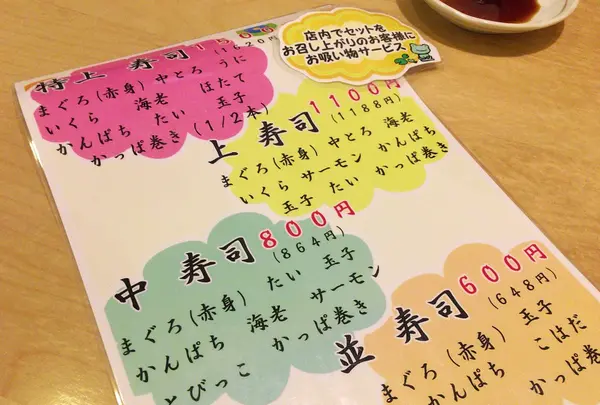 店内でセットを
お召し上がりのお客様に
お吸い物サービス
特上 寿司
まぐろ(赤身) 中とろ うに
いくら 海老 ほたて
かんぱち たい 玉子
かっぱ巻き(1/2本)
上 寿司 1100円
(1188円)
まぐろ(赤身) 中とろ 海老
いくら サーモン かんぱち
玉子 たい かっぱ巻き
中 寿司 800円
(864円)
まぐろ(赤身) たい 玉子
かんぱち 海老 サーモン
とびっこ かっぱ巻き
並 寿司 600円
(648円)
まぐろ(赤身) 玉子
かんぱち こはだ
かっぱ巻き